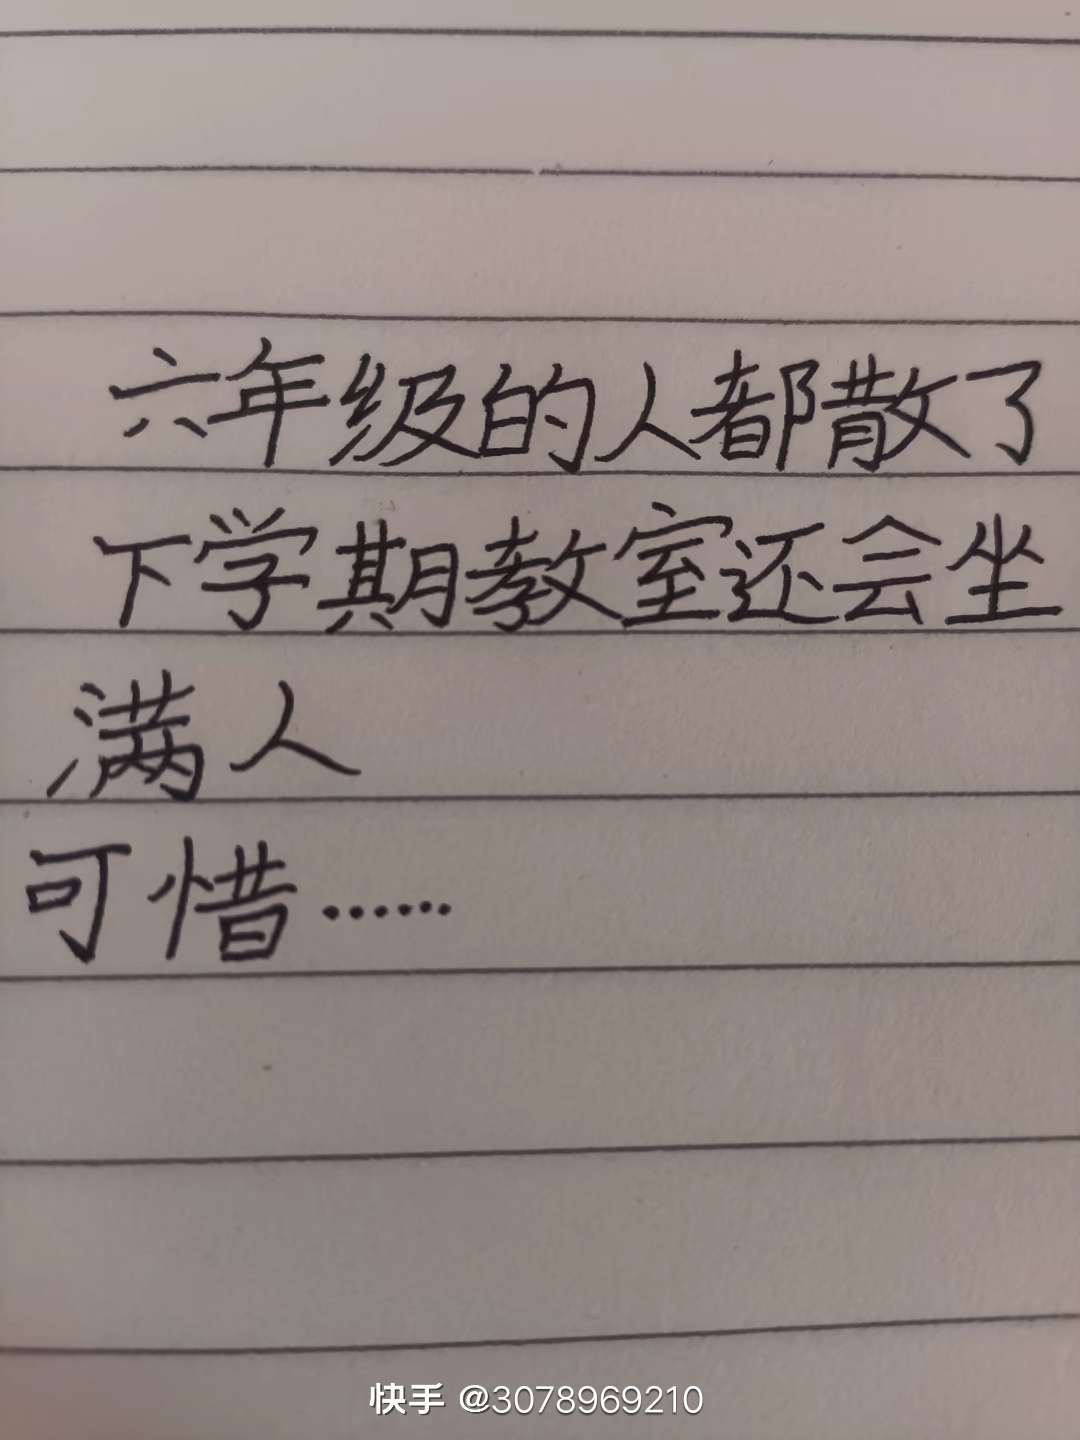 六年级的人都散了
下学期教室还会坐
满人
可惜……
快手 @3078969210